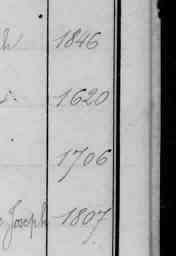 1846
1620
1706
Joseph 1807